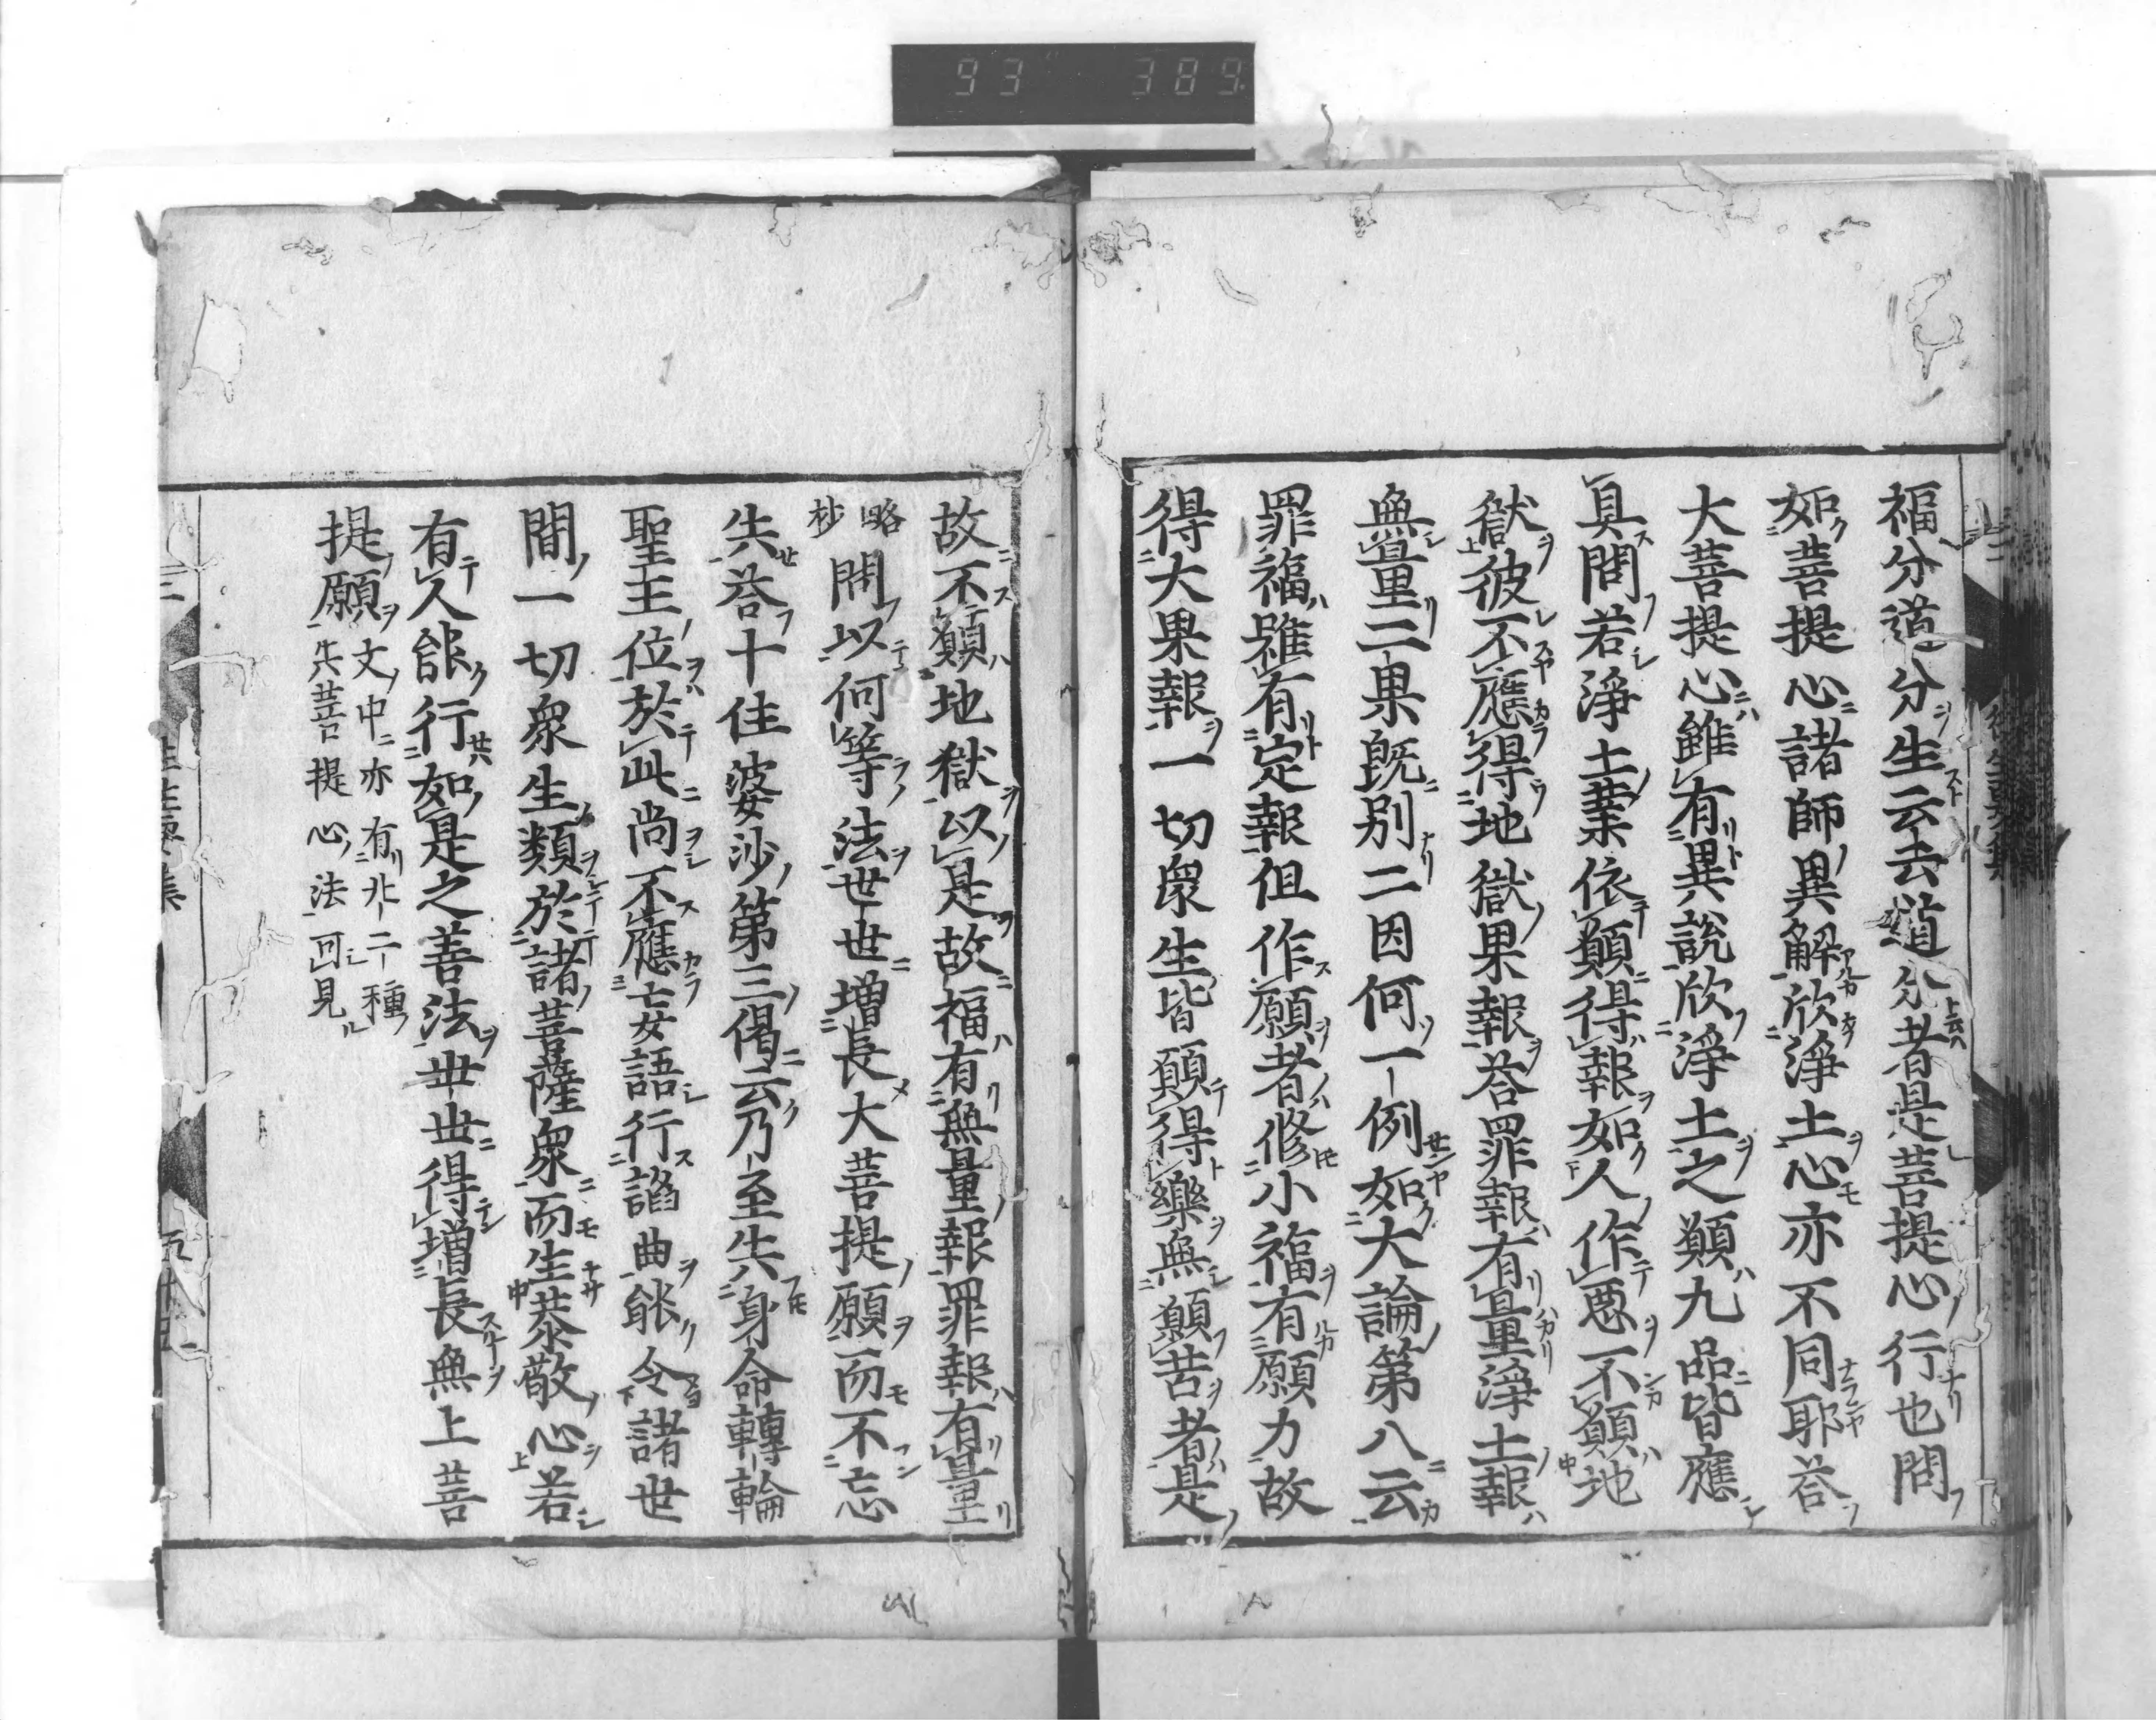 93 389
福分道分生云云道分者是菩提心行也問
如菩提心諸師異解欣淨土心亦不同耶答
大菩提心雖有異說欣淨土之願九品皆應
具問若淨土業依願得報如人作惡不願地
獄彼不應得地獄果報答罪報有量淨土報
無量二果既別二因何一例如大論第八云
罪福雖有定報但作願者修小福有願力故
得大果報一切衆生皆願得樂無願苦者是
故不願地獄以是故福有無量報罪報有量
略
抄
問以何等法世世增長大菩提願而不忘
失答十住婆沙第三偈云乃至失身命轉輪
聖王位於此尚不應妄語行諂曲能令諸世
間一切衆生類於諸菩薩衆而生恭敬心若
有人能行如是之善法世世得增長無上菩
提願
文中亦有非二種
失菩提心法可見